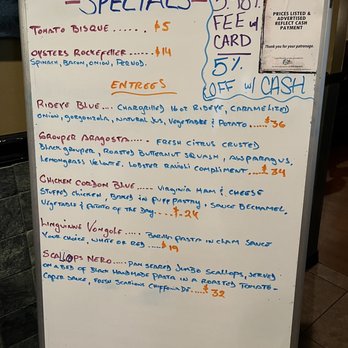 SPECIALS
TOMATO BISQUE ...... $5
OYSTERS ROCKEFELLER .... $14
SPINACH, BACON, ONION, PERNOD.
FEE w/
CARD
5%
OFF w/ CASH
PRICES LISTED &
ADVERTISED
REFLECT CASH
PAYMENT
Thank you for your patronage.
ENTREES
RIBEYE BLUE .... CHARGRILLED 16oz RIBEYE, CARAMELIZED
ONION, GORGONZOLA, NATURAL JUS, VEGETABLE & POTATO ..... $36
GROUPER ARAGOSTA .... FRESH CITRUS CRUSTED
BLACK GROUPER, ROASTED BUTTERNUT SQUASH, ASPARAGUS,
LEMONGRASS VELOUTE, LOBSTER RAVIOLI COMPLIMENT .... $34
CHICKEN CORDON BLUE .... VIRGINIA HAM & CHEESE
STUFFED CHICKEN, BAKED IN PUFF PASTRY, SAUCE BECHAMEL,
VEGETABLE & POTATO OF THE DAY .... $24
LINGUINE VONGOLE .... PASTA IN CLAM SAUCE
YOUR CHOICE, WHITE OR RED .... $19
SCALLOPS NERO ..... PAN SEARED JUMBO SCALLOPS, SERVED
ON A BED OF BLACK HANDMADE PASTA IN A ROASTED TOMATO-
CAPER SAUCE, FRESH CHIFFONADE .... $32